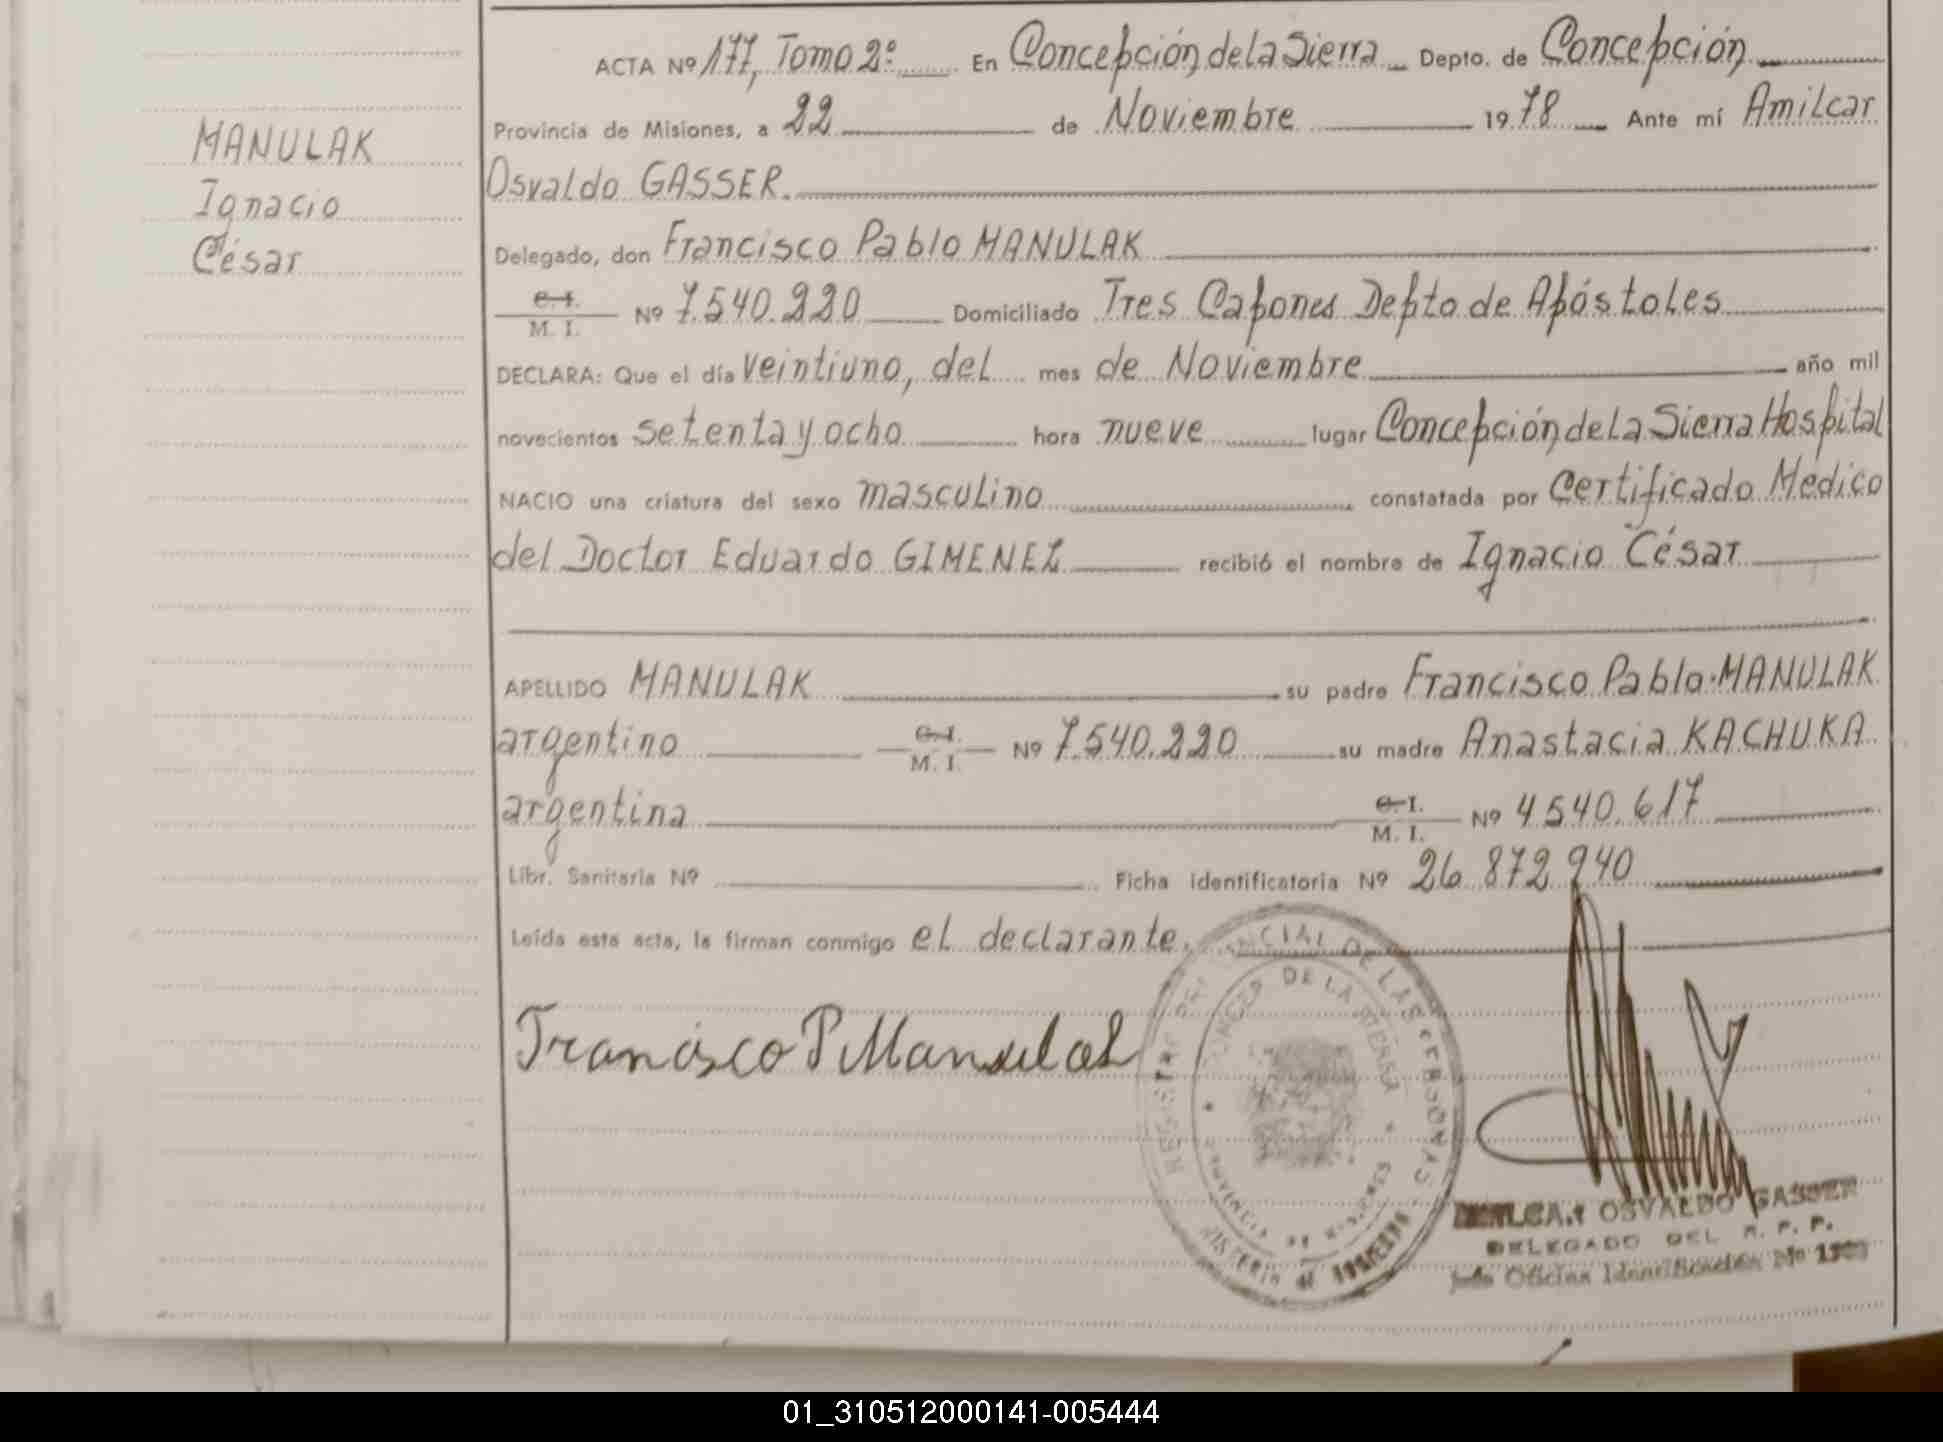 ACTA Nº 177, Tomo 2º En Concepción de la Sierra Depto. de Concepción
Provincia de Misiones, a 22 de Noviembre 1978 Ante mí Amilcar
Osvaldo GASSER.
Delegado, don Francisco Pablo MANULAK
C. I. / M. I. Nº 7.540.220 Domiciliado Tres Capones Depto de Apóstoles
DECLARA: Que el día veintiuno, del mes de Noviembre año mil
novecientos setenta y ocho hora nueve lugar Concepción de la Sierra Hospital
NACIO una criatura del sexo masculino constatada por Certificado Médico
del Doctor Eduardo GIMENEZ recibió el nombre de Ignacio César
APELLIDO MANULAK su padre Francisco Pablo MANULAK
argentino C. I. / M. I. Nº 7.540.220 su madre Anastacia KACHUKA
argentina C. I. / M. I. Nº 4540.617
Libr. Sanitaria Nº Ficha identificatoria Nº 26 872 940
Leída esta acta, la firman conmigo el declarante.
MANULAK
Ignacio
César
Francisco P Manulak
DE LAS PERSONAS
CONCEP. DE LA SIERRA
PROVINCIA DE MISIONES
OSVALDO GASSER
DELEGADO DEL R. P. P.
Jefe Oficina Identificación Nº
01_310512000141-005444